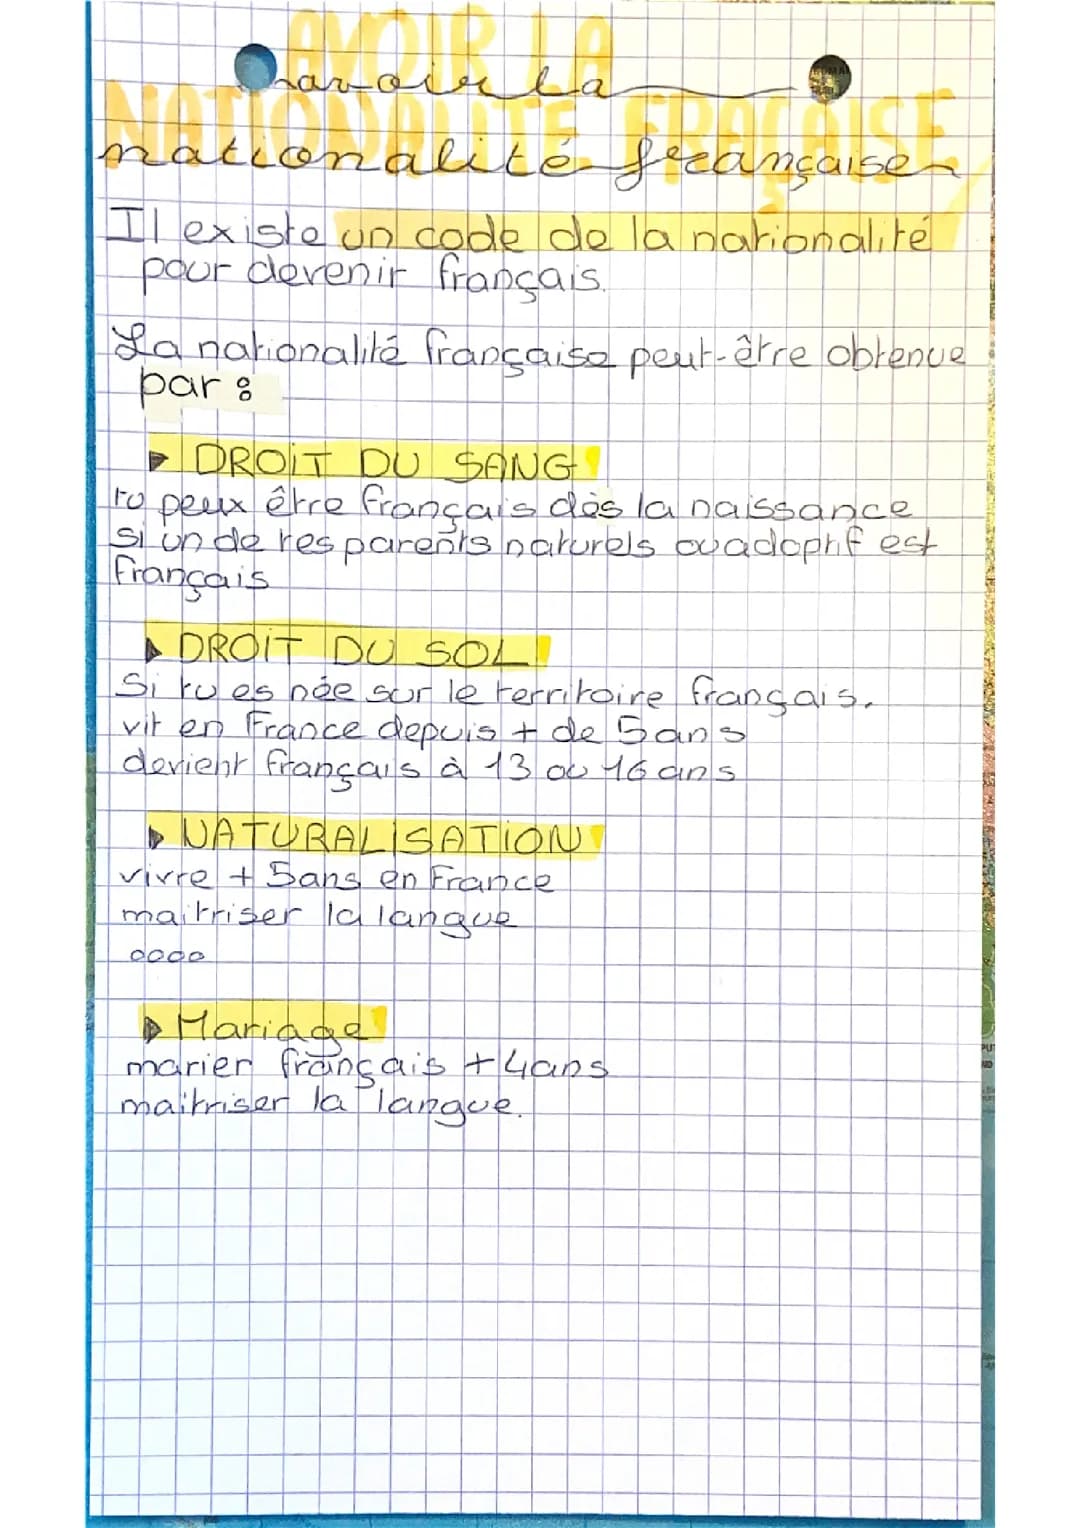 AVOIR LA
NATIONALITÉ FRAÇAISE
avoir la
nationalité française
Il existe un code de la nationalité
pour devenir français.
La nationalité française peut-être obtenue
par :
▸ DROIT DU SANG
tu peux être français dès la naissance
si un de tes parents naturels ou adoptif est
français
▸ DROIT DU SOL
Si tu es née sur le territoire français.
vit en France depuis + de 5 ans
devient français à 13 ou 16 ans
▸ NATURALISATION
vivre + 5ans en France
maitriser la langue
....
▸ Mariage
marier français + 4ans
maitriser la langue.